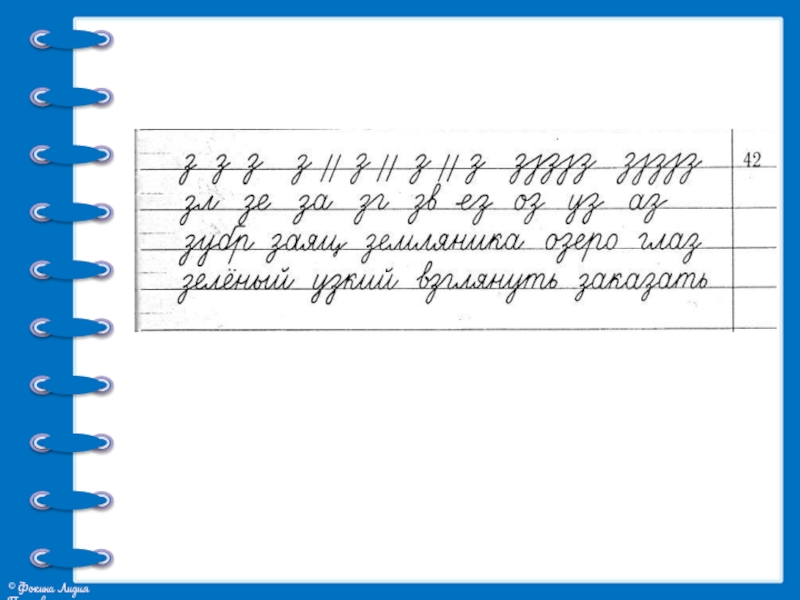 з з з з // з // з // з зззз зззз 42
зл зе за зг зв ез оз уз аз
зубр заяц земляника озеро глаз
зелёный узкий взглянуть заказать
© Фокина Лидия